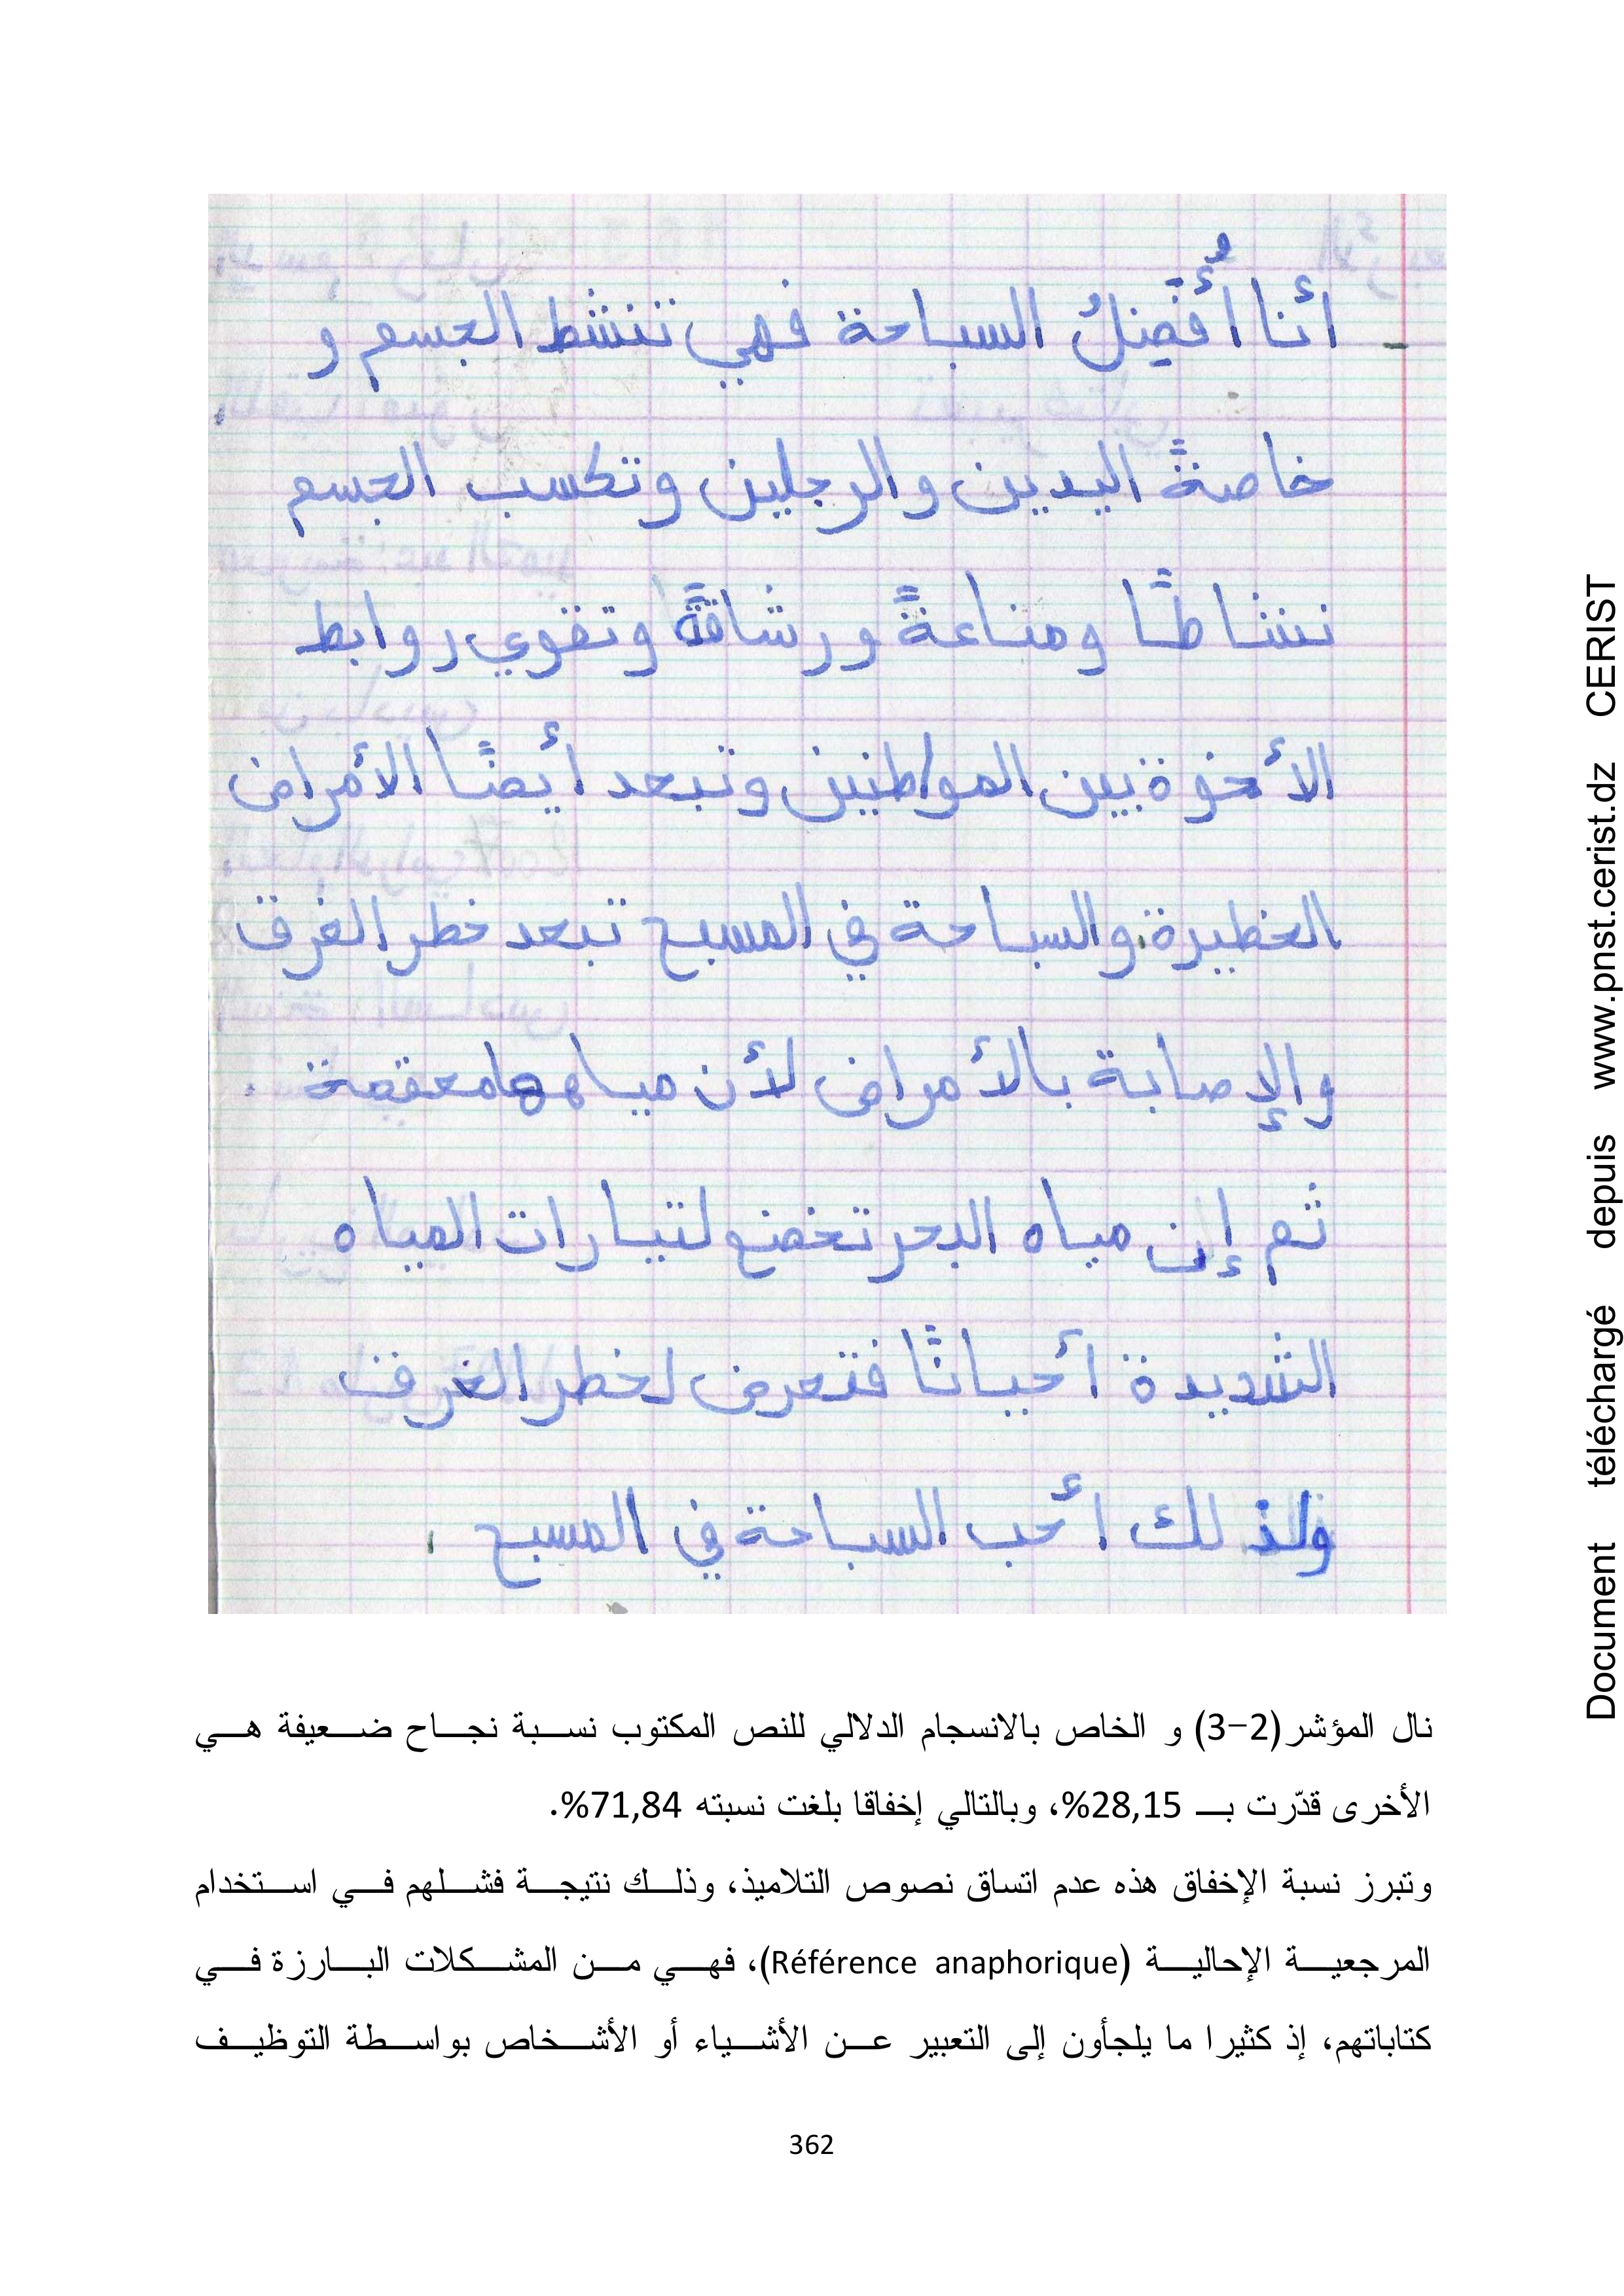 - أنا أُفَضِلُ السباحة فهي تنشط الجسم و
خاصةً اليدين والرجلين وتكسب الجسم
نشاطًا ومناعةً ورشاقةً وتقوي روابط
الأخوة بين المواطنين وتبعد أيضًا الأمراض
الخطيرة والسباحة في المسبح تبعد خطر الغرق
والإصابة بالأمراض لأن مياهها معقمة .
ثم إن مياه البحر تخضع لتيارات المياه
الشديدة أحيانًا فتعرض لخطر الغرق
ولذلك أحب السباحة في المسبح .
نال المؤشر(2-3) و الخاص بالانسجام الدلالي للنص المكتوب نسبة نجاح ضعيفة هي
الأخرى قدّرت بـ 28,15%، وبالتالي إخفاقا بلغت نسبته 71,84%.
وتبرز نسبة الإخفاق هذه عدم اتساق نصوص التلاميذ، وذلك نتيجة فشلهم في استخدام
المرجعية الإحالية (Référence anaphorique)، فهي من المشكلات البارزة في
كتاباتهم، إذ كثيرا ما يلجأون إلى التعبير عن الأشياء أو الأشخاص بواسطة التوظيف
362
Document téléchargé depuis www.pnst.cerist.dz CERIST